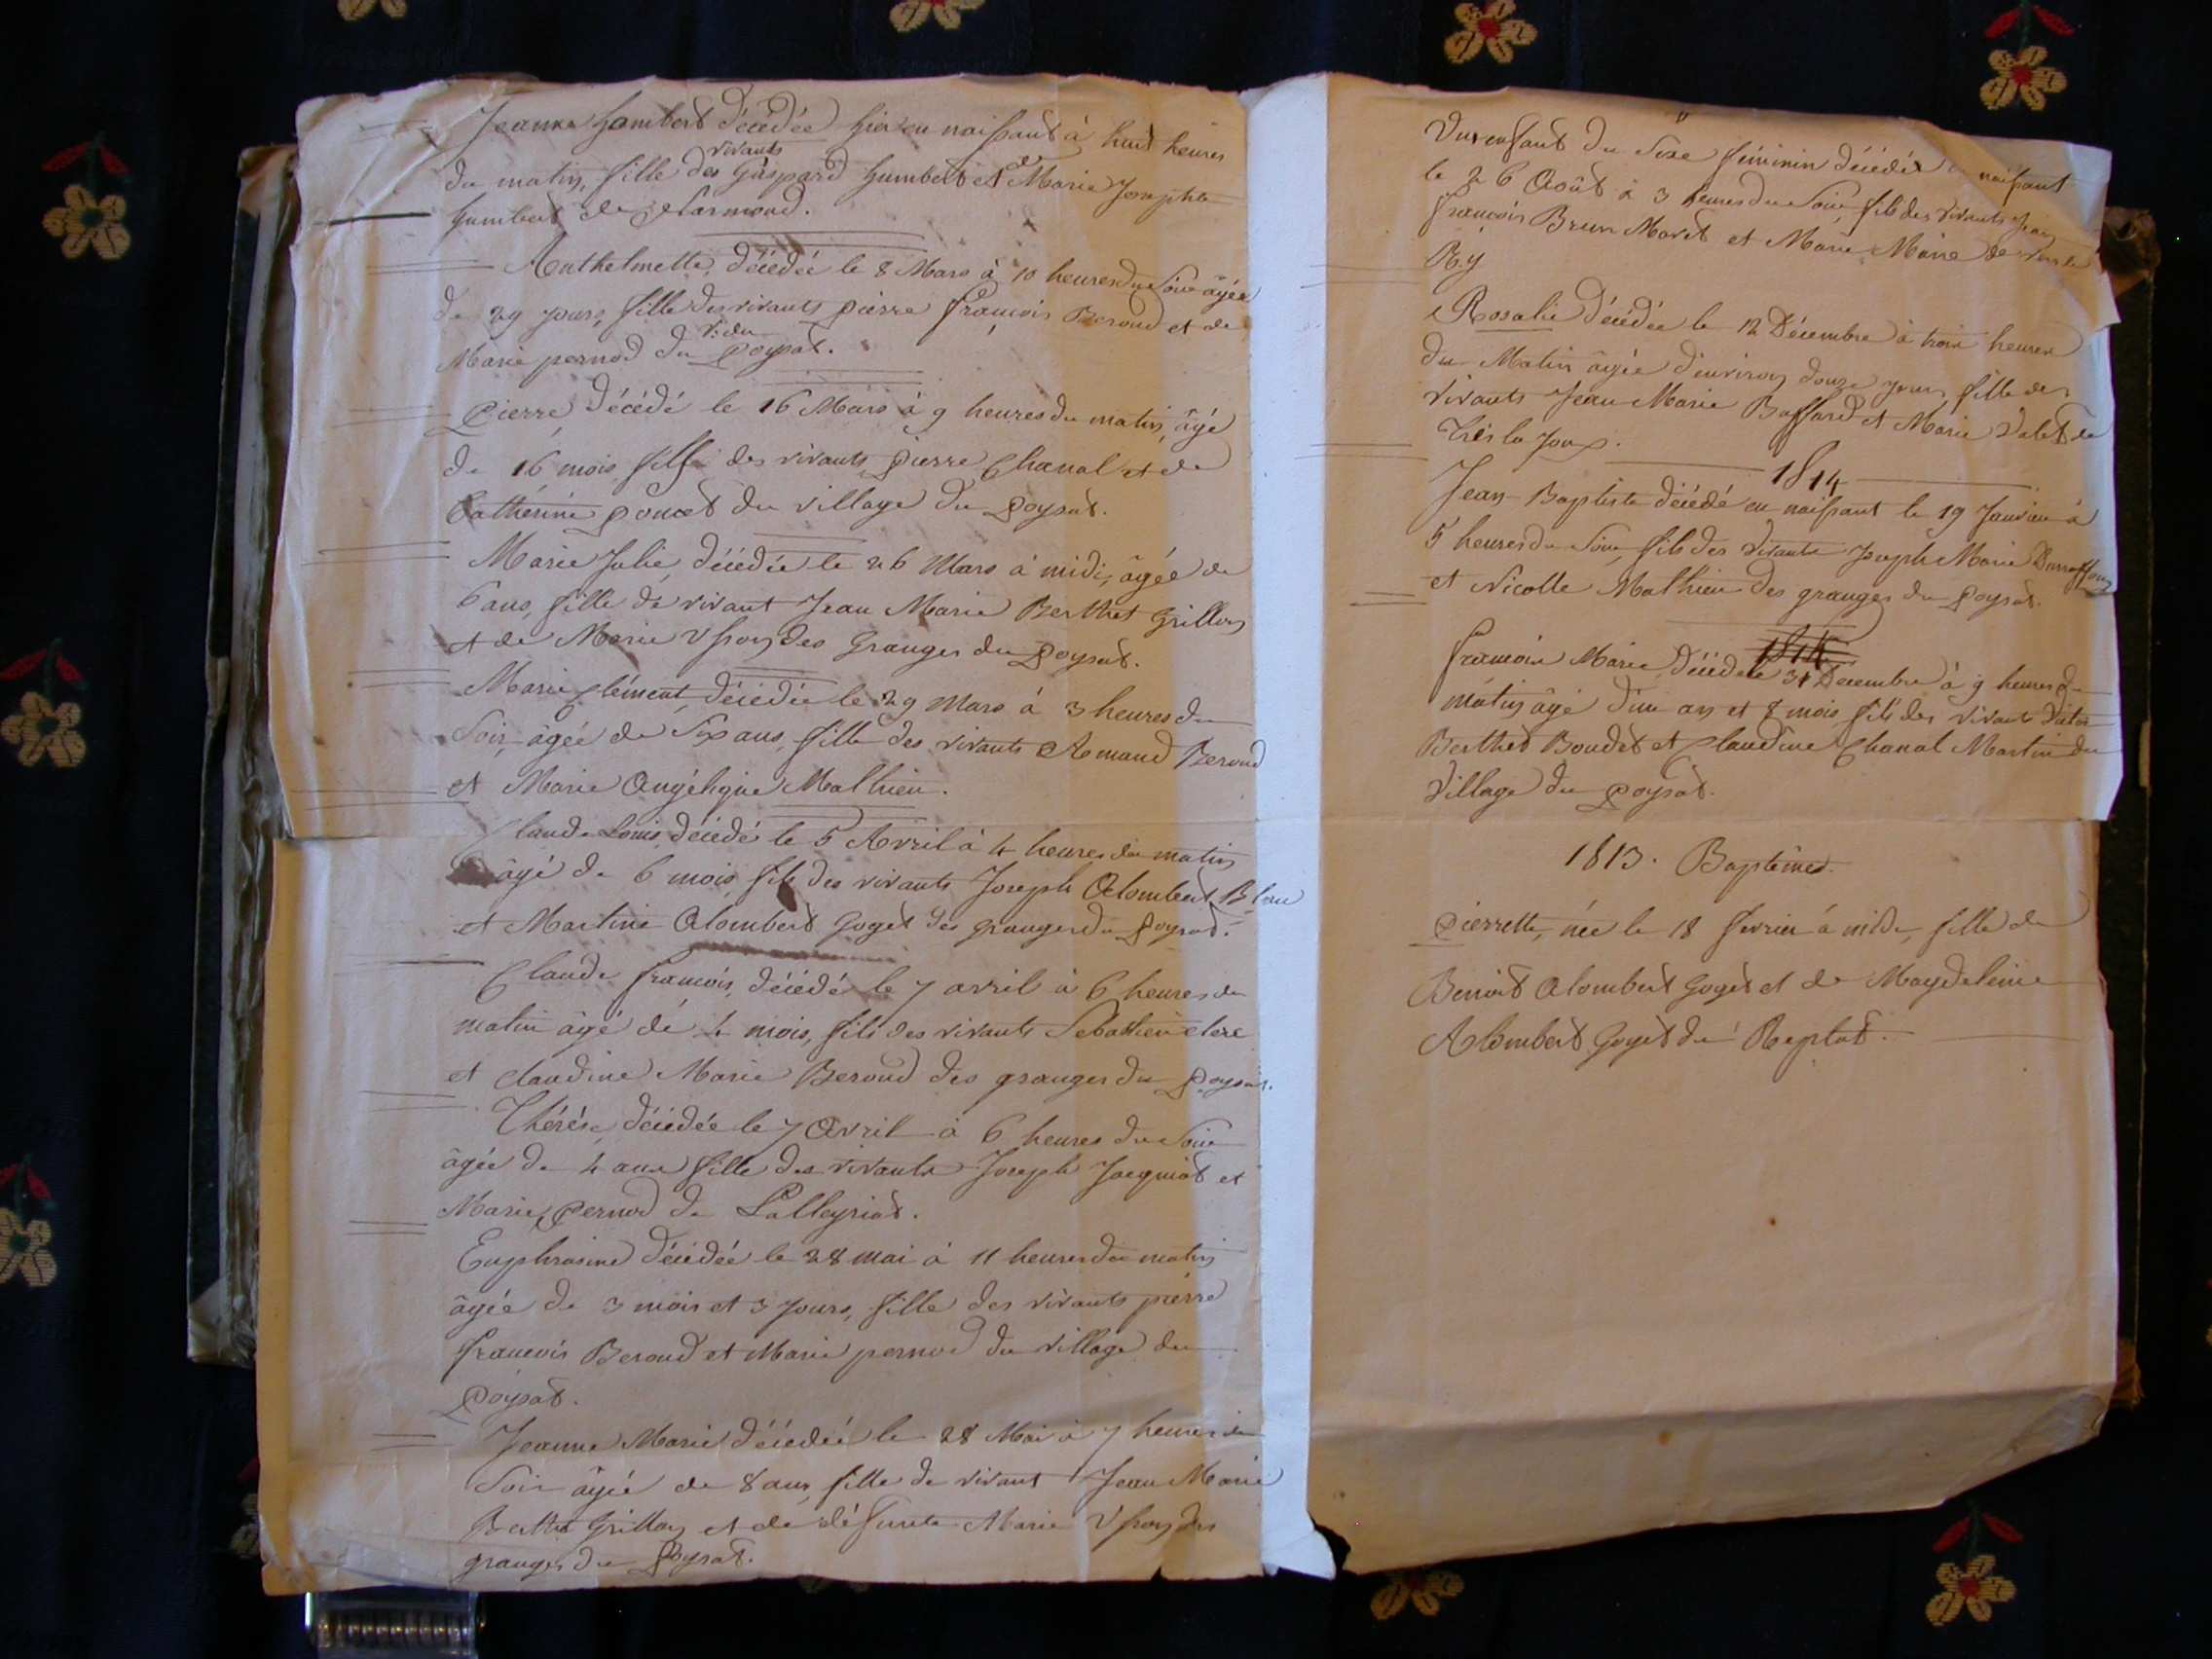 Jeanne humbert décédée hier en naissant à huit heures
vivants
du matin, fille des Gaspard humbert et Marie Josephte
humbert de
Anthelmette, décédée le 8 Mars à 10 heures du Soir âgée
de 29 jours, fille des vivants pierre françois Beroud et de
v. du
Marie pernod du Poysat.
Pierre, décédé le 16 Mars à 9 heures du matin, âgé
de 16 mois, fils des vivants Pierre Chanal et de
Cathérine poncet du village du Poysat.
Marie Julie, décédée le 26 Mars à midi, âgée de
6 ans, fille de vivant Jean Marie Berthet Grillon
et de Marie des Granges du Poysat.
Marie Clément, décédée le 29 Mars à 3 heures du
Soir, âgée de Six ans, fille des vivants Armand Beroud
et Marie Angélique Mathieu.
Claude Louis, décédé le 5 Avril à 4 heures du matin
âgé de 6 mois, fils des vivants Joseph Alombert
et Martine Alombert Goget des granges du Poysat.
Claude françois, décédé le 7 avril à 6 heures du
matin âgé de 4 mois, fils des vivants Sébastien clerc
et claudine Marie Beroud des granges du Poysat.
Thérèse, décédée le 7 Avril à 6 heures du Soir
âgée de 4 ans fille des vivants Joseph Jacquiot et
Marie Pernod de Lalleyriat.
Euphrasine décédée le 28 mai à 11 heures du matin
âgée de 3 mois et 3 jours, fille des vivants pierre
françois Beroud et Marie pernod du village du
Poysat.
Jeanne Marie décédée le 28 Mai à 7 heures du
Soir âgée de 8 ans, fille de vivant Jean Marie
Berthet Grillon et de défunte Marie des
granges du Poysat.
Un enfant du Sexe féminin décédé en naissant
le 26 Août à 3 heures du Soir, fils des vivants Jean
françois Brun Maret et Marie
Ry
Rosalie décédée le 12 Décembre à trois heures
du Matin âgée d'environ douze jours, fille des
vivants Jean Marie Baffard et Marie Valet de
Très la Joux.
1814
Jean-Baptiste décédé en naissant le 19 Janvier à
5 heures du Soir, fils des vivants Joseph Marie
et Nicolle Mathieu des granges du Poysat.
françois Marie, décédé le 31 Décembre à 9 heures du
matin âgé d'un an et 8 mois, fils des vivants
Berthet Boudet et Claudine Chanal Martin du
Village du Poysat.
1813. Baptêmes.
Pierrette, née le 18 février à midi, fille de
Benoit Alombert Goget et de Magdeleine
Alombert Goget du Replat.